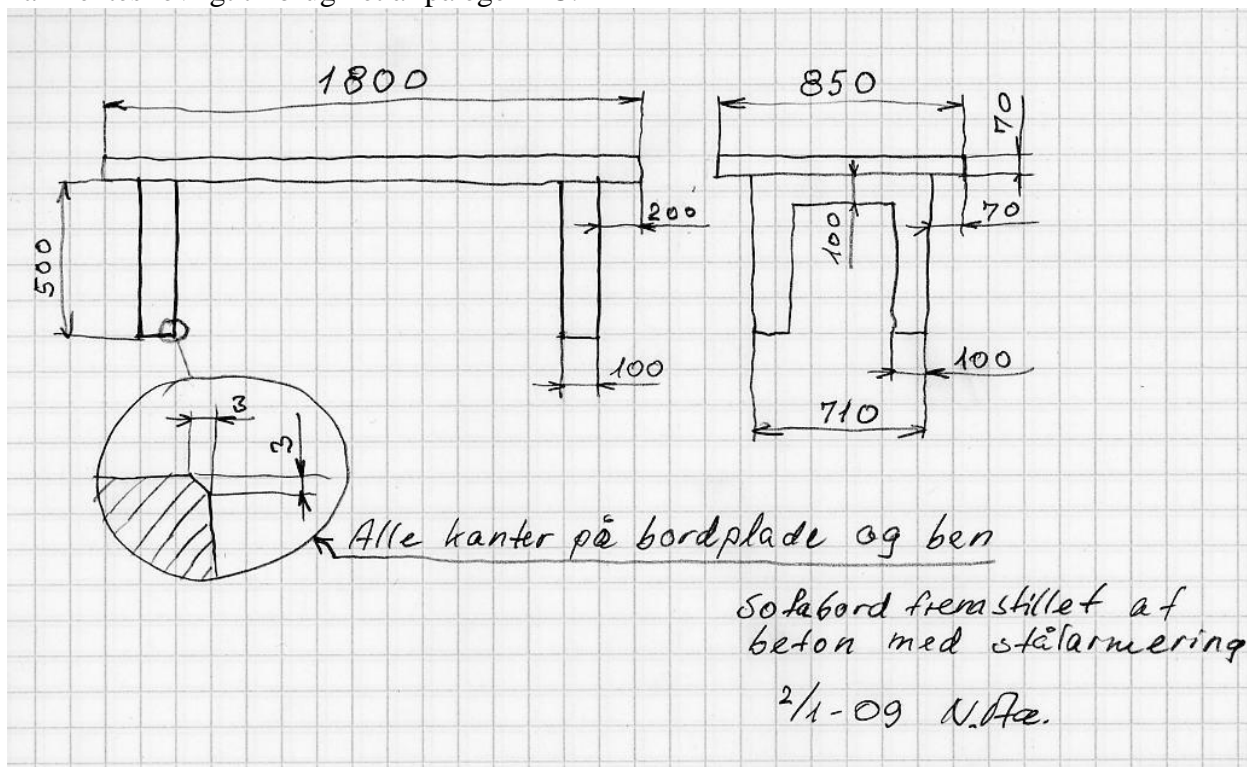 1800
850
70
200
100
70
500
100
100
710
3
3
Alle kanter på bordplade og ben
Sofabord fremstillet af
beton med stålarmering
2/1-09